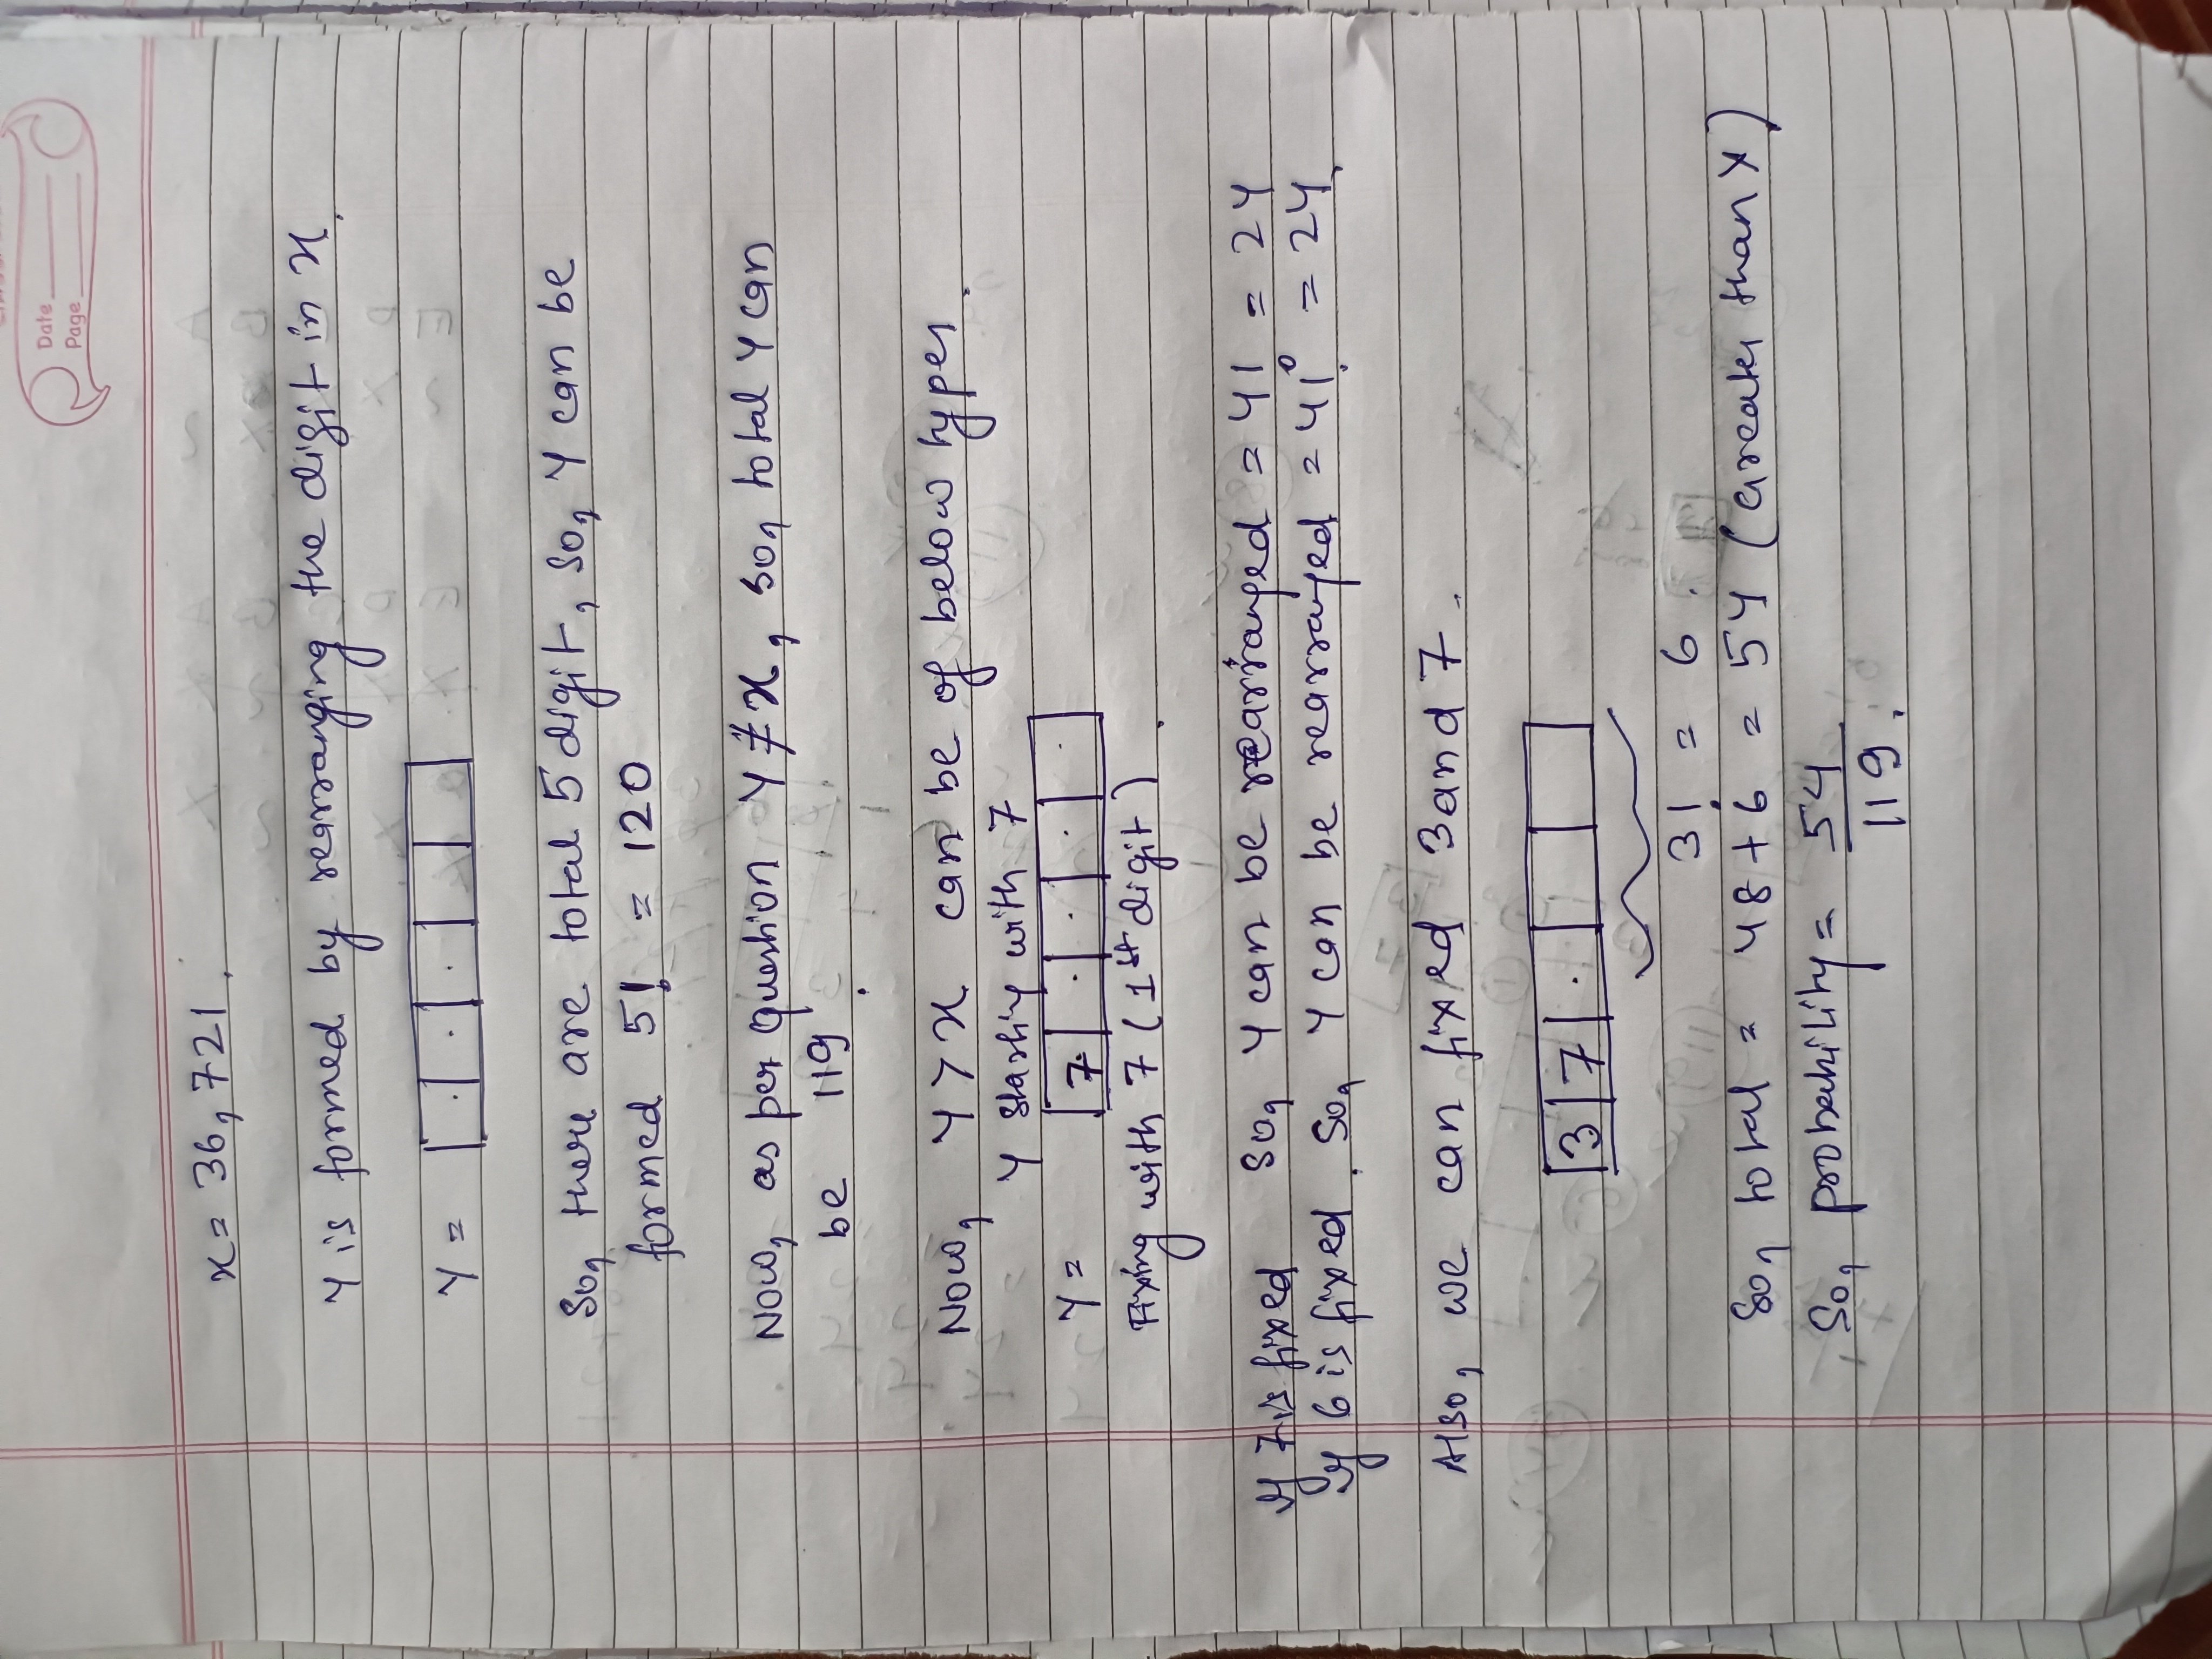 Date
Page
x = 36,721.
Y is formed by rearranging the digit in x.
Y =
So, there are total 5 digit, so, Y can be
formed 5! = 120
Now, as per question Y ≠ x, so, total Y can
be 119.
Now, Y > x can be of below types.
Y starting with 7
Y = 7
Fixing with 7 (1st digit).
If 7 is fixed So, Y can be rearranged = 4! = 24
If 6 is fixed. So, Y can be rearranged = 4! = 24.
Also, we can fixed 3 and 7.
3 7
3! = 6.
So, total = 48 + 6 = 54 (Greater than x)
So, probability = 54
119.